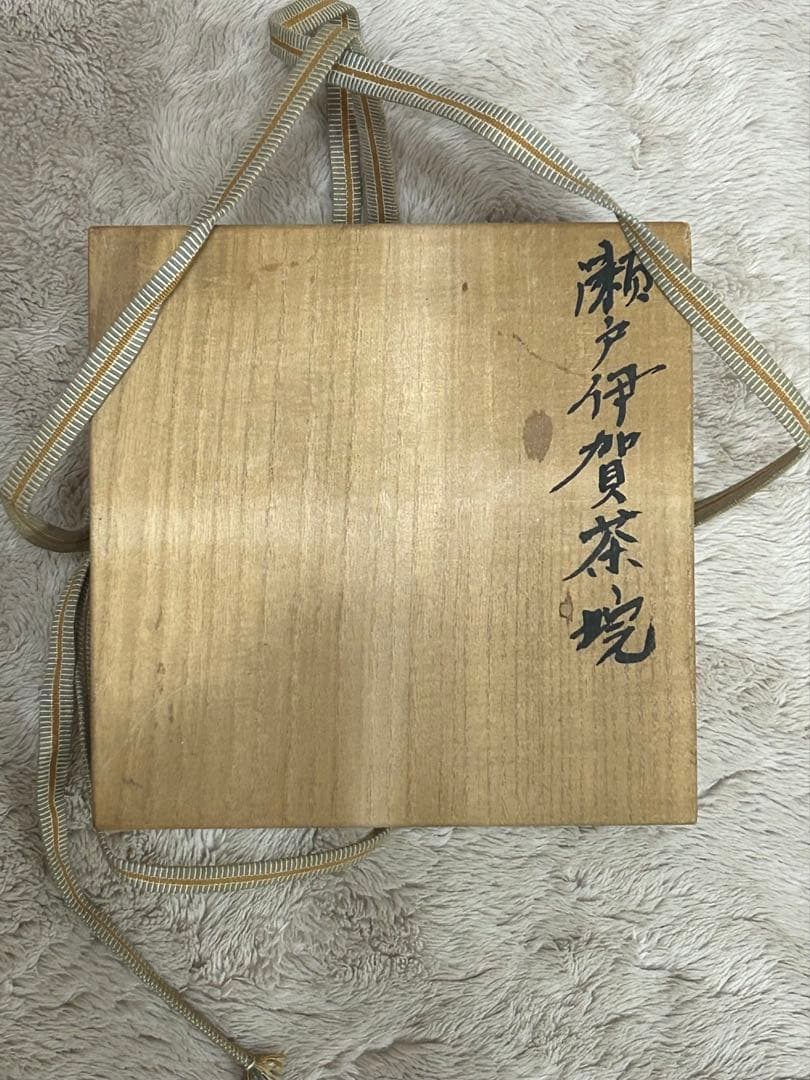 瀬戸伊賀茶埦